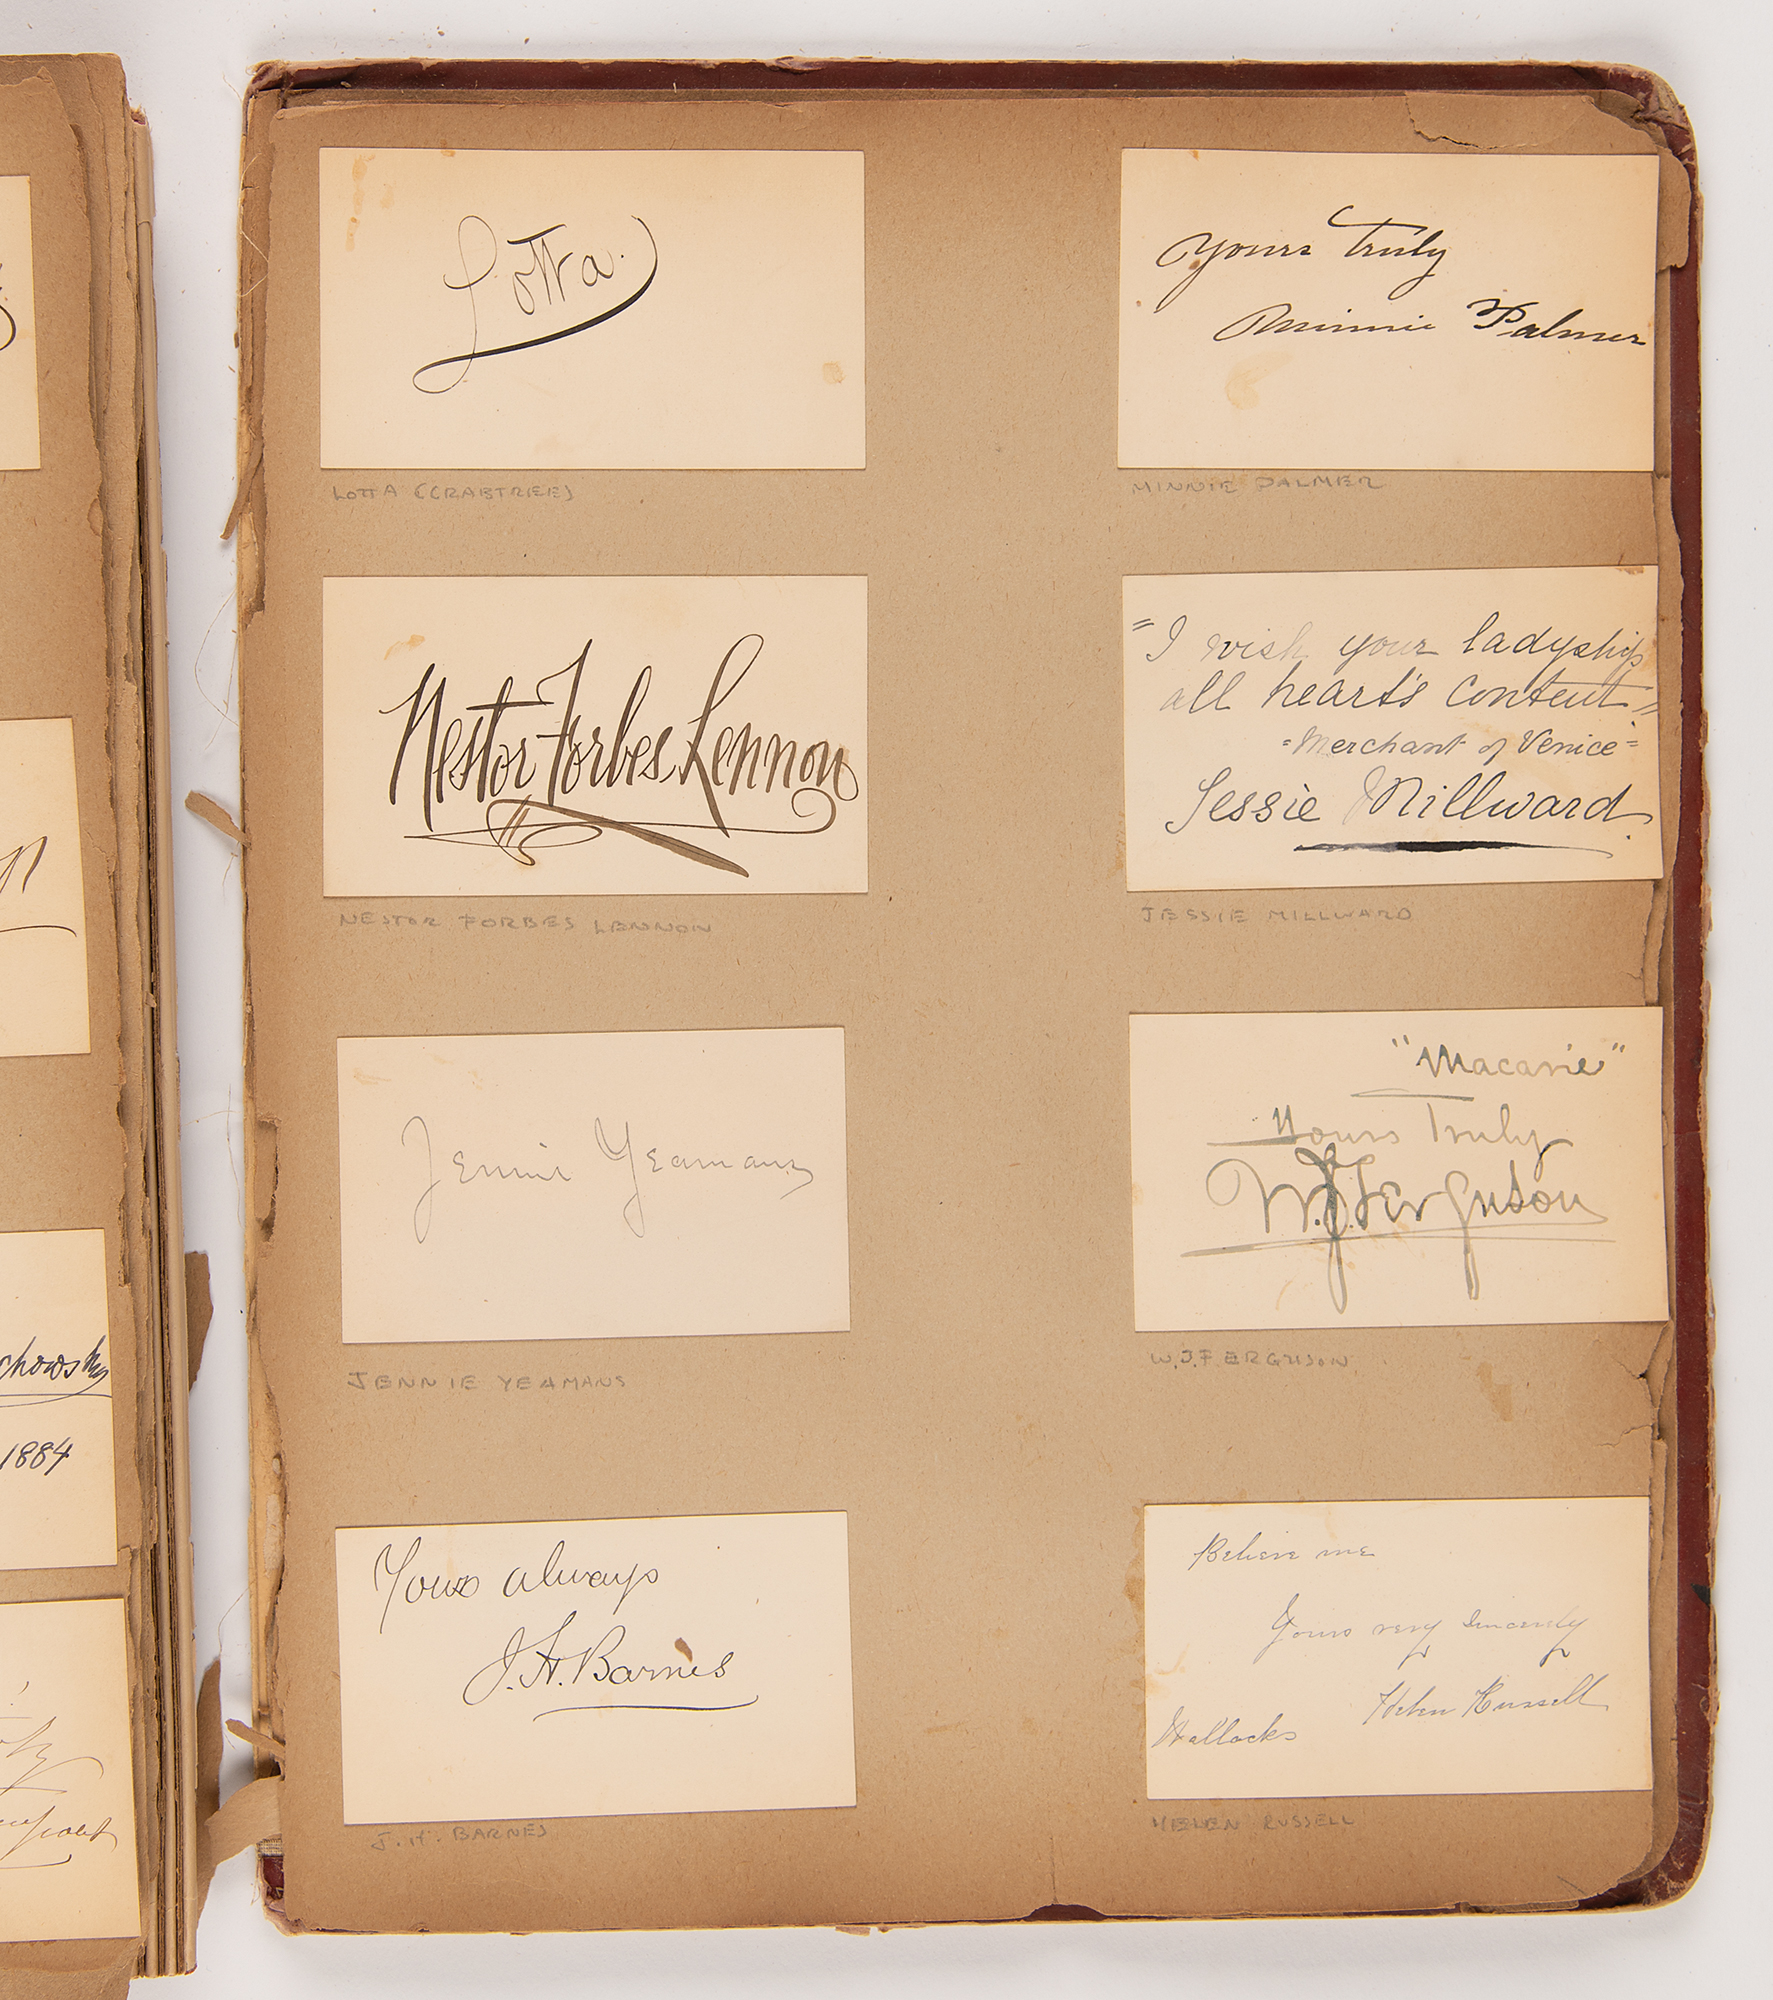 Lotta.
LOTTA (CRABTREE)
Yours Truly
Minnie Palmer
MINNIE PALMER
Nestor Forbes Lennon
NESTOR FORBES LENNON
"I wish your ladyship
all heart's content."
"Merchant of Venice"
Jessie Millward.
JESSIE MILLWARD
Jennie Yeamans
JENNIE YEAMANS
"Macarie"
Yours Truly
W.J. Ferguson
W.J. FERGUSON
Yours always
J. H. Barnes
J. H. BARNES
Believe me
Yours very sincerely
Helen Russell
Wallacks
HELEN RUSSELL
chowsky
1884